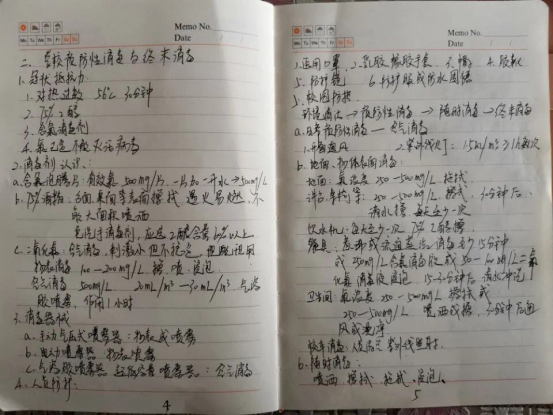 Memo No.
Date
Mo Tu We Th Fr Sa Su
二、学校预防性消毒与终末消毒
1. 冠状抵抗力
1. 对热过敏 56℃ 30分钟
2. 75%乙醇
3. 含氯消毒剂
4. 氯己定不能灭活病毒
2. 消毒剂认识:
a. 含氯泡腾片: 有效氯 500mg/片. 一片加一升水→500mg/L
b. 75%酒精: 手面、桌面等表面擦拭 遇火易燃, 不
最大面积喷洒
免洗手消毒剂, 应选乙醇含量60%以上
c. 二氧化氯: 空气消毒, 刺激小但不稳定,
物表消毒 100—200mg/L 擦、喷、浸泡
空气消毒 500mg/L 20mL/m³—30mL/m³ 气溶
胶喷雾, 作用1小时
3. 消毒器械
a. 手动气压式喷雾器: 物表或喷雾
b. 电动喷雾器 物表喷雾
c. 气溶胶喷雾器 超低容量喷雾器: 空气消毒
4. 人员防护:
4
Memo No.
Date
Mo Tu We Th Fr Sa Su
1. 医用口罩 2. 乳胶橡胶手套 3. 帽 4. 胶靴
5. 防护镜 6. 防护服或防水围裙
5. 校园防控
环境清洁 → 预防性消毒 → 随时消毒 → 终末消毒
a. 日常预防性消毒—空气消毒
1. 开窗通风 2. 紫外线灯: 1.5W/m³
b. 地面、物体表面消毒:
地面: 氯浓度 250—500mg/L 拖拭
讲台、桌椅等: 250—500mg/L. 擦拭, 30分钟后
清水擦 每天至少一次
饮水机: 每天至少一次 75%乙醇擦
餐具: 煮沸或流通蒸汽消毒至少15分钟
或 250mg/L 含氯消毒液或 50—100mg/L 二氧
化氯消毒液浸泡 15—30分钟后 清水冲洗
卫生间: 氯浓度 250—500mg/L 擦拭或
250—500mg/L 喷洒或擦, 30分钟后通
风或
b. 随时消毒:
喷洒 擦拭 拖拭 浸泡.
5